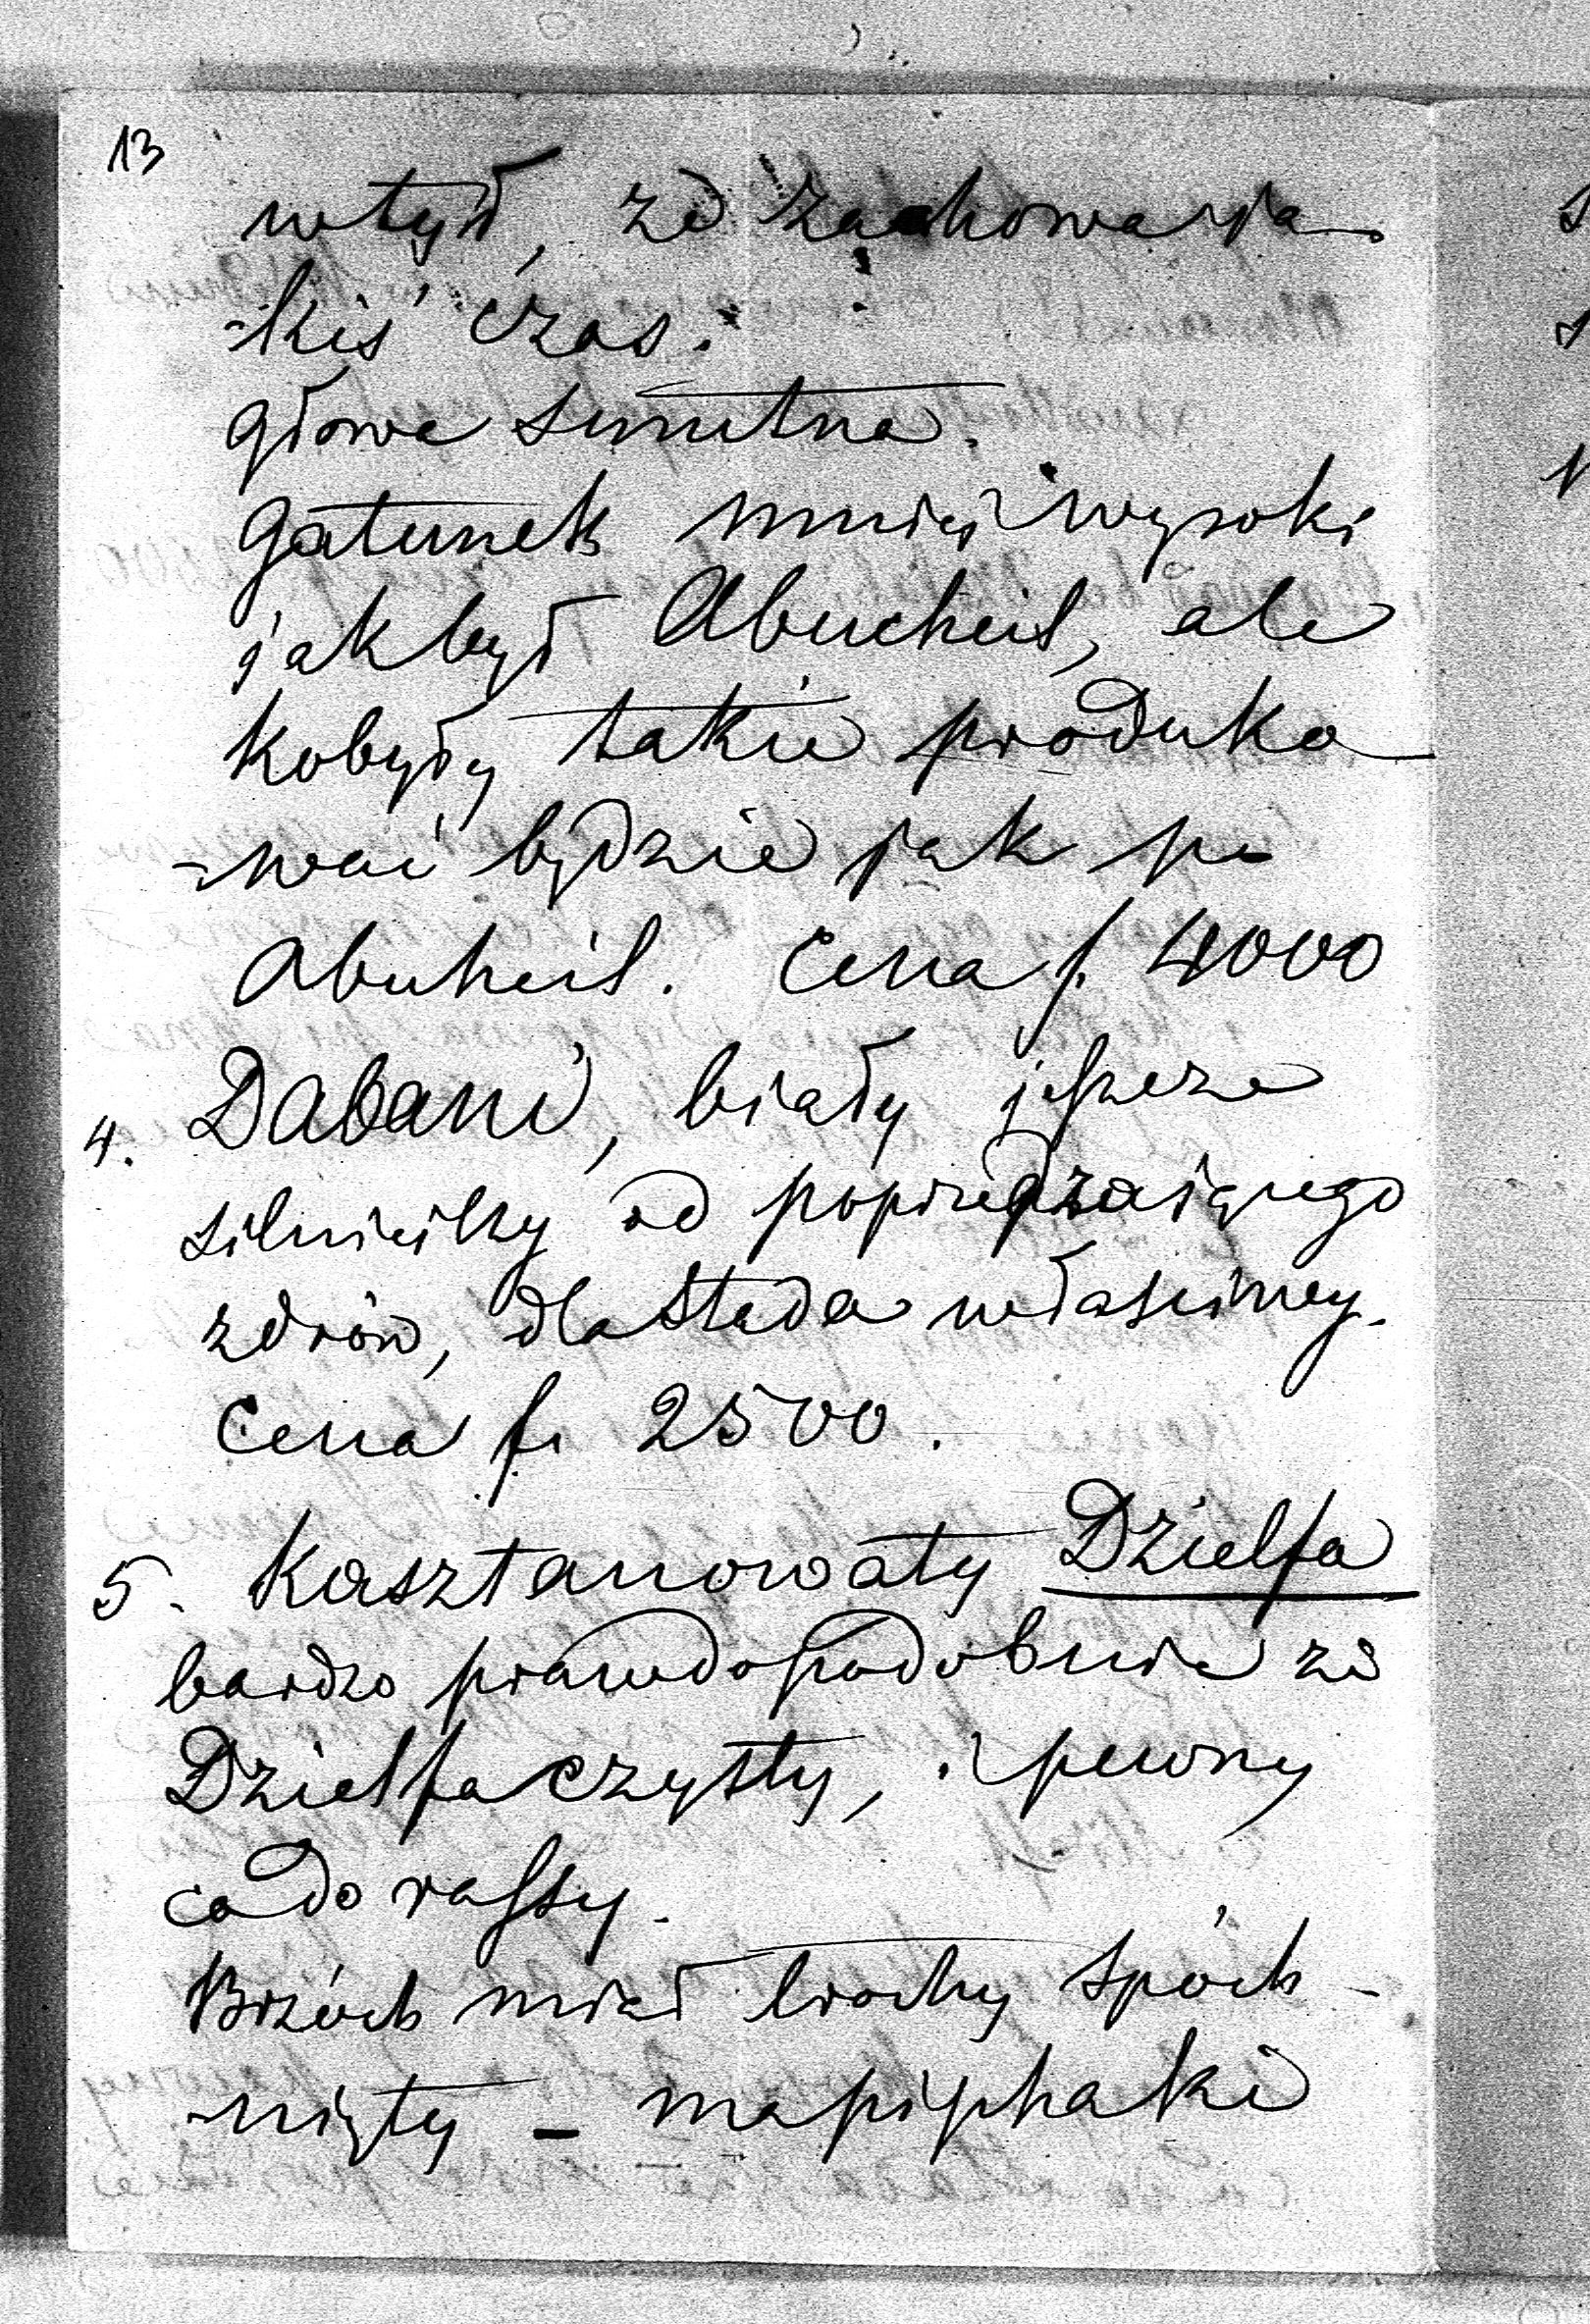 13
wtył, że zachowa ja-
-kiś czas.
głowa smutna.
gatunek mniej wysoki
jak był Abucheil, ale
kobyły takie produko-
-wać będzie jak po
Abuheil. Cena f. 4000
4. Dabani, biały jeszcze
silnieiszy od poprzedzaiącego
zdrów, dla stada właściwy.
Cena f. 2500.
5. Kasztanowaty Dzielfa
bardzo prawdopodobnie że
Dzielfa czysty, i pewny
co do rassy.
Brzóch miał trochy spóch-
-nięty - ma